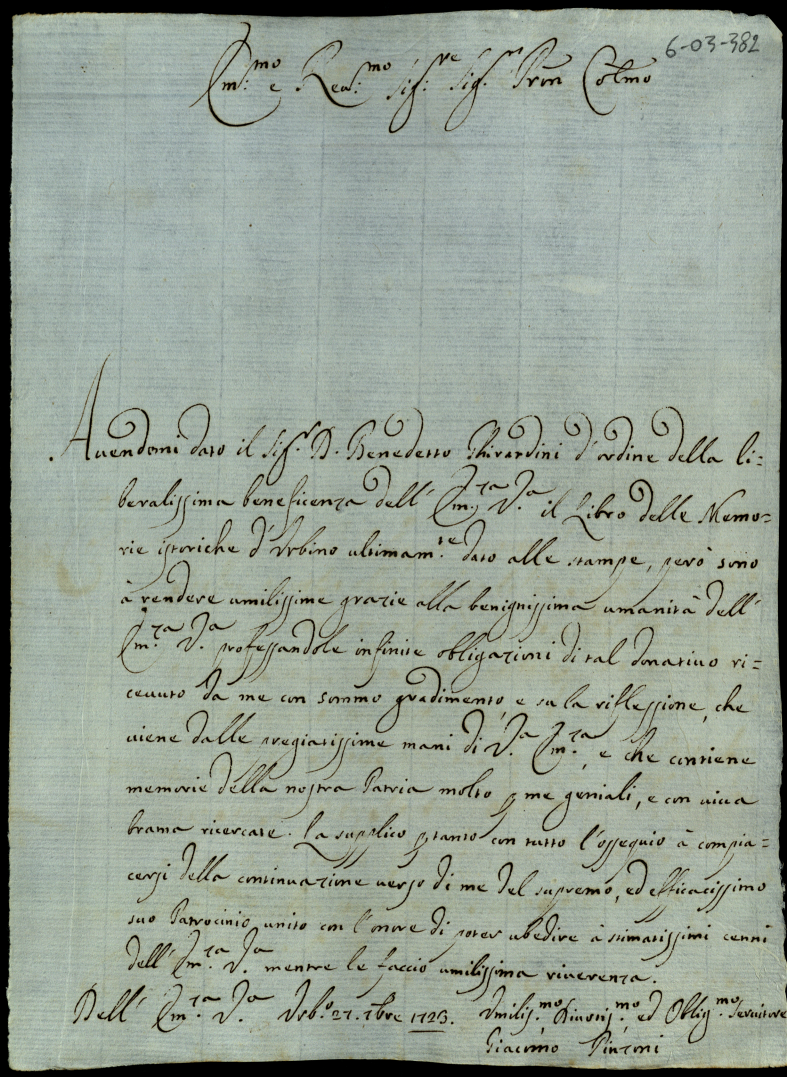 6-03-382
Em:mo e Reu:mo Sig:re Sig:r Pron Colmo
Auendomi dato il Sig:r D. Benedetto Ghirardini d'ordine della li=
beralissima beneficenza dell' Em:za V.a il Libro delle Memo=
rie istoriche d'Vrbino ultimam:te dato alle stampe, però sono
à rendere umilissime grazie alla benignissima umanità dell'
Em:za V.a professandole infinite obligazioni di tal donatiuo ri=
ceuuto da me con sommo gradimento, e su la riflessione, che
viene dalle pregiatissime mani di V.a Em:za, e che contiene
memorie della nostra Patria molto p me geniali, e con viua
brama ricercate. La supplico ptanto con tutto l'ossequio à compia=
cersi della continuazione verso di me del supremo, ed efficacissimo
suo Patrocinio unito con l'onore di poter ubedire à stimatissimi cenni
dell' Em:za V.a mentre le faccio umilissima riuerenza.
Dell' Em:za V.a Vrb:o 27. 7bre 1723. Vmilis:mo Diuotis:mo ed Oblig:mo Seruitore
Giacomo Pinzoni